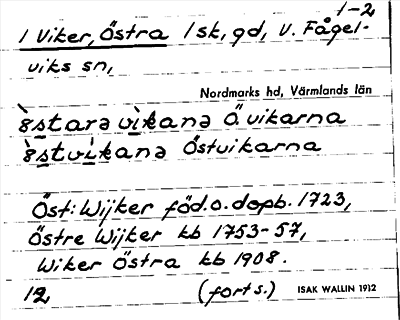 1-2
1 Viker, Östra 1 sk, gd, V. Fågel-
viks sn,
Nordmarks hd, Värmlands län
 östarə vikanə Ö vikarna
östvikanə Östvikarna
Öst: Wijker föd.o.dopb. 1723,
Östre Wijker kb 1753-57,
Wiker Östra kb 1908.
12, (forts.) ISAK WALLIN 1912